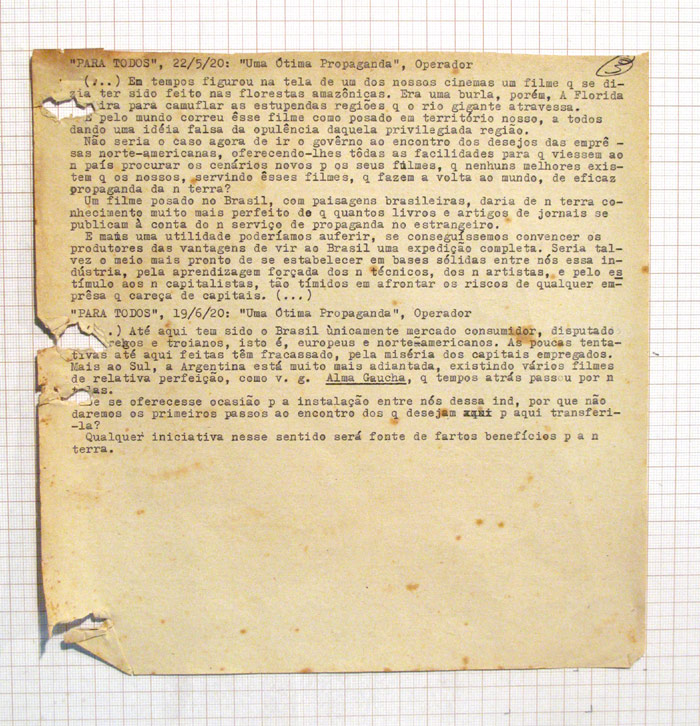 "PARA TODOS", 22/5/20: "Uma Ótima Propaganda", Operador
3
(...) Em tempos figurou na tela de um dos nossos cinemas um filme q se di-
zia ter sido feito nas florestas amazônicas. Era uma burla, porém, A Florida
ira para camuflar as estupendas regiões q o rio gigante atravessa.
E pelo mundo correu êsse filme como posado em território nosso, a todos
dando uma idéia falsa da opulência daquela privilegiada região.
Não seria o caso agora de ir o govêrno ao encontro dos desejos das emprê -
sas norte-americanas, oferecendo-lhes tôdas as facilidades para q viessem ao
n país procurar os cenários novos p os seus fúlmes, q nenhuns melhores exis-
tem q os nossos, servindo êsses filmes, q fazem a volta ao mundo, de eficaz
propaganda da n terra?
Um filme posado no Brasil, com paisagens brasileiras, daria de n terra co-
nhecimento muito mais perfeito do q quantos livros e artigos de jornais se
publicam à conta do n serviço de propaganda no estrangeiro.
E mais uma utilidade poderíamos auferir, se conseguíssemos convencer os
produtores das vantagens de vir ao Brasil uma expedição completa. Seria tal-
vez o meio mais pronto de se estabelecer em bases sólidas entre nós essa in-
dústria, pela aprendizagem forçada dos n técnicos, dos n artistas, e pelo es
tímulo aos n capitalistas, tão tímidos em afrontar os riscos de qualquer em-
prêsa q careça de capitais. (...)
"PARA TODOS", 19/6/20: "Uma Ótima Propaganda", Operador
.) Até aqui tem sido o Brasil ùnicamente mercado consumidor, disputado
regos e troianos, isto é, europeus e norte-americanos. As poucas tenta-
tivas até aqui feitas têm fracassado, pela miséria dos capitais empregados.
Mais ao Sul, a Argentina está muito mais adiantada, existindo vários filmes
de relativa perfeição, como v. g. Alma Gaucha, q tempos atrás passou por n
telas.
se se oferecesse ocasião p a instalação entre nós dessa ind, por que não
daremos os primeiros passos ao encontro dos q desejam p aqui transferi-
-la?
Qualquer iniciativa nesse sentido será fonte de fartos benefícios p a n
terra.